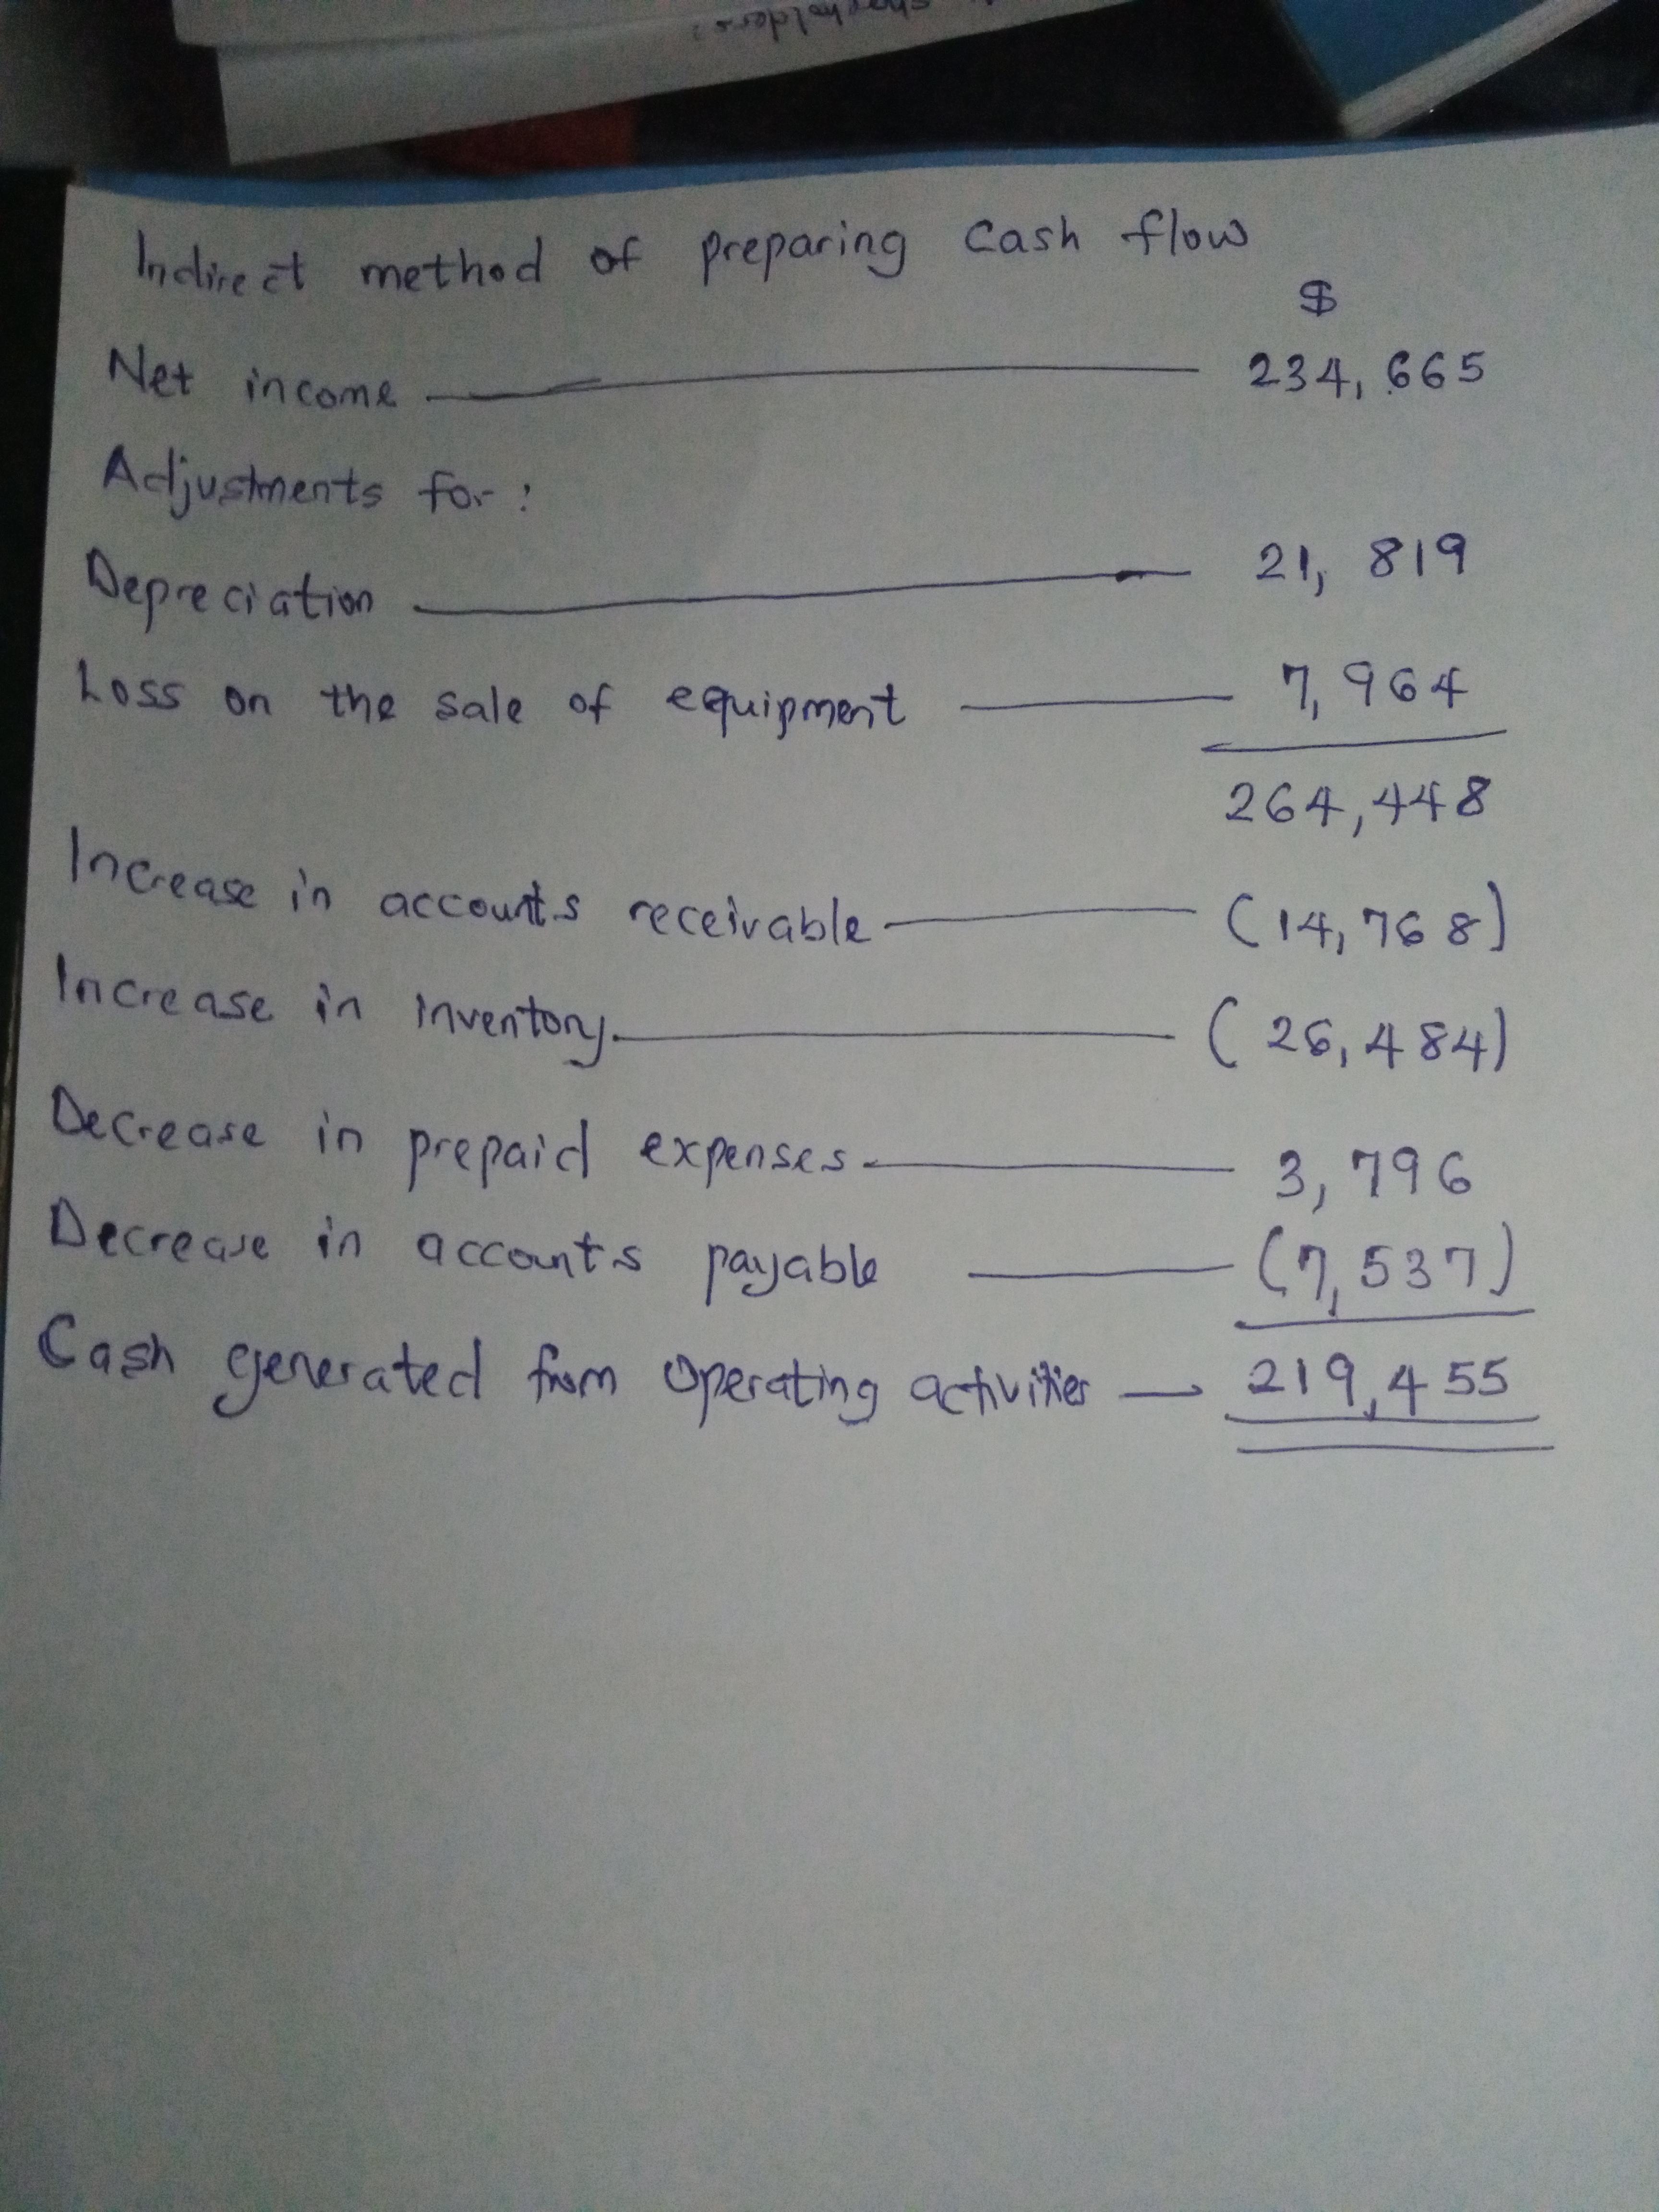 shareholders:
Indirect method of preparing Cash flow
$
Net income 234,665
Adjustments for:
Depreciation 21,819
Loss on the sale of equipment 7,964
264,448
Increase in accounts receivable (14,768)
Increase in inventory (26,484)
Decrease in prepaid expenses 3,796
Decrease in accounts payable (7,537)
Cash generated from operating activities 219,455